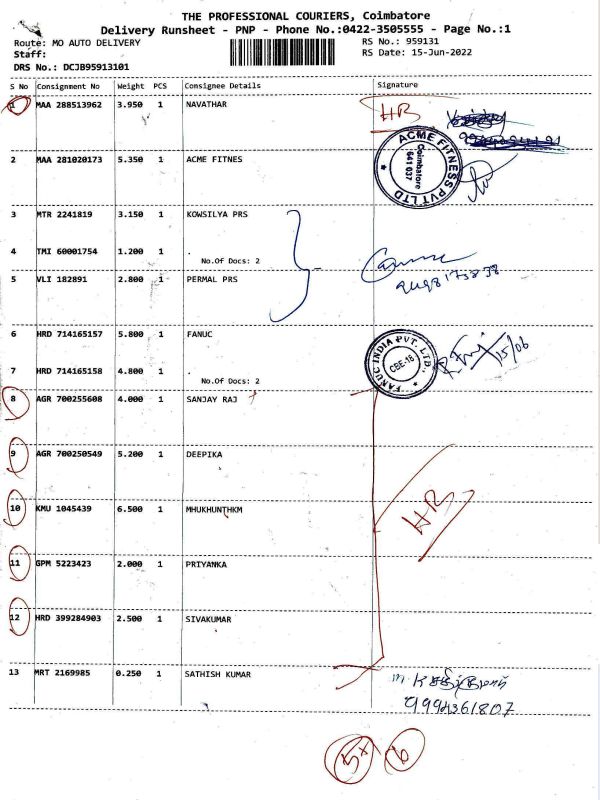 THE PROFESSIONAL COURIERS, Coimbatore
Delivery Runsheet - PNP - Phone No.:0422-3505555 - Page No.:1
Route: MO AUTO DELIVERY RS No.: 959131
Staff: RS Date: 15-Jun-2022
DRS No.: DCJB95913101
S No Consignment No Weight PCS Consignee Details Signature
1 MAA 288513962 3.950 1 NAVATHAR HB
2 MAA 281020173 5.350 1 ACME FITNES
ACME FITNESS PVT LTD
Coimbatore
641 037
3 MTR 2241819 3.150 1 KOWSILYA PRS
4 TMI 60001754 1.200 1 .
No.Of Docs: 2
5 VLI 182891 2.800 1 PERMAL PRS
6 HRD 714165157 5.800 1 FANUC
FANUC INDIA PVT. LTD.
CBE-18
15/06
7 HRD 714165158 4.800 1 .
No.Of Docs: 2
8 AGR 700255608 4.000 1 SANJAY RAJ
9 AGR 700250549 5.200 1 DEEPIKA
10 KMU 1045439 6.500 1 MHUKHUNTHKM
HB
11 GPM 5223423 2.000 1 PRIYANKA
12 HRD 399284903 2.500 1 SIVAKUMAR
13 MRT 2169985 0.250 1 SATHISH KUMAR
9994361807
5x 6